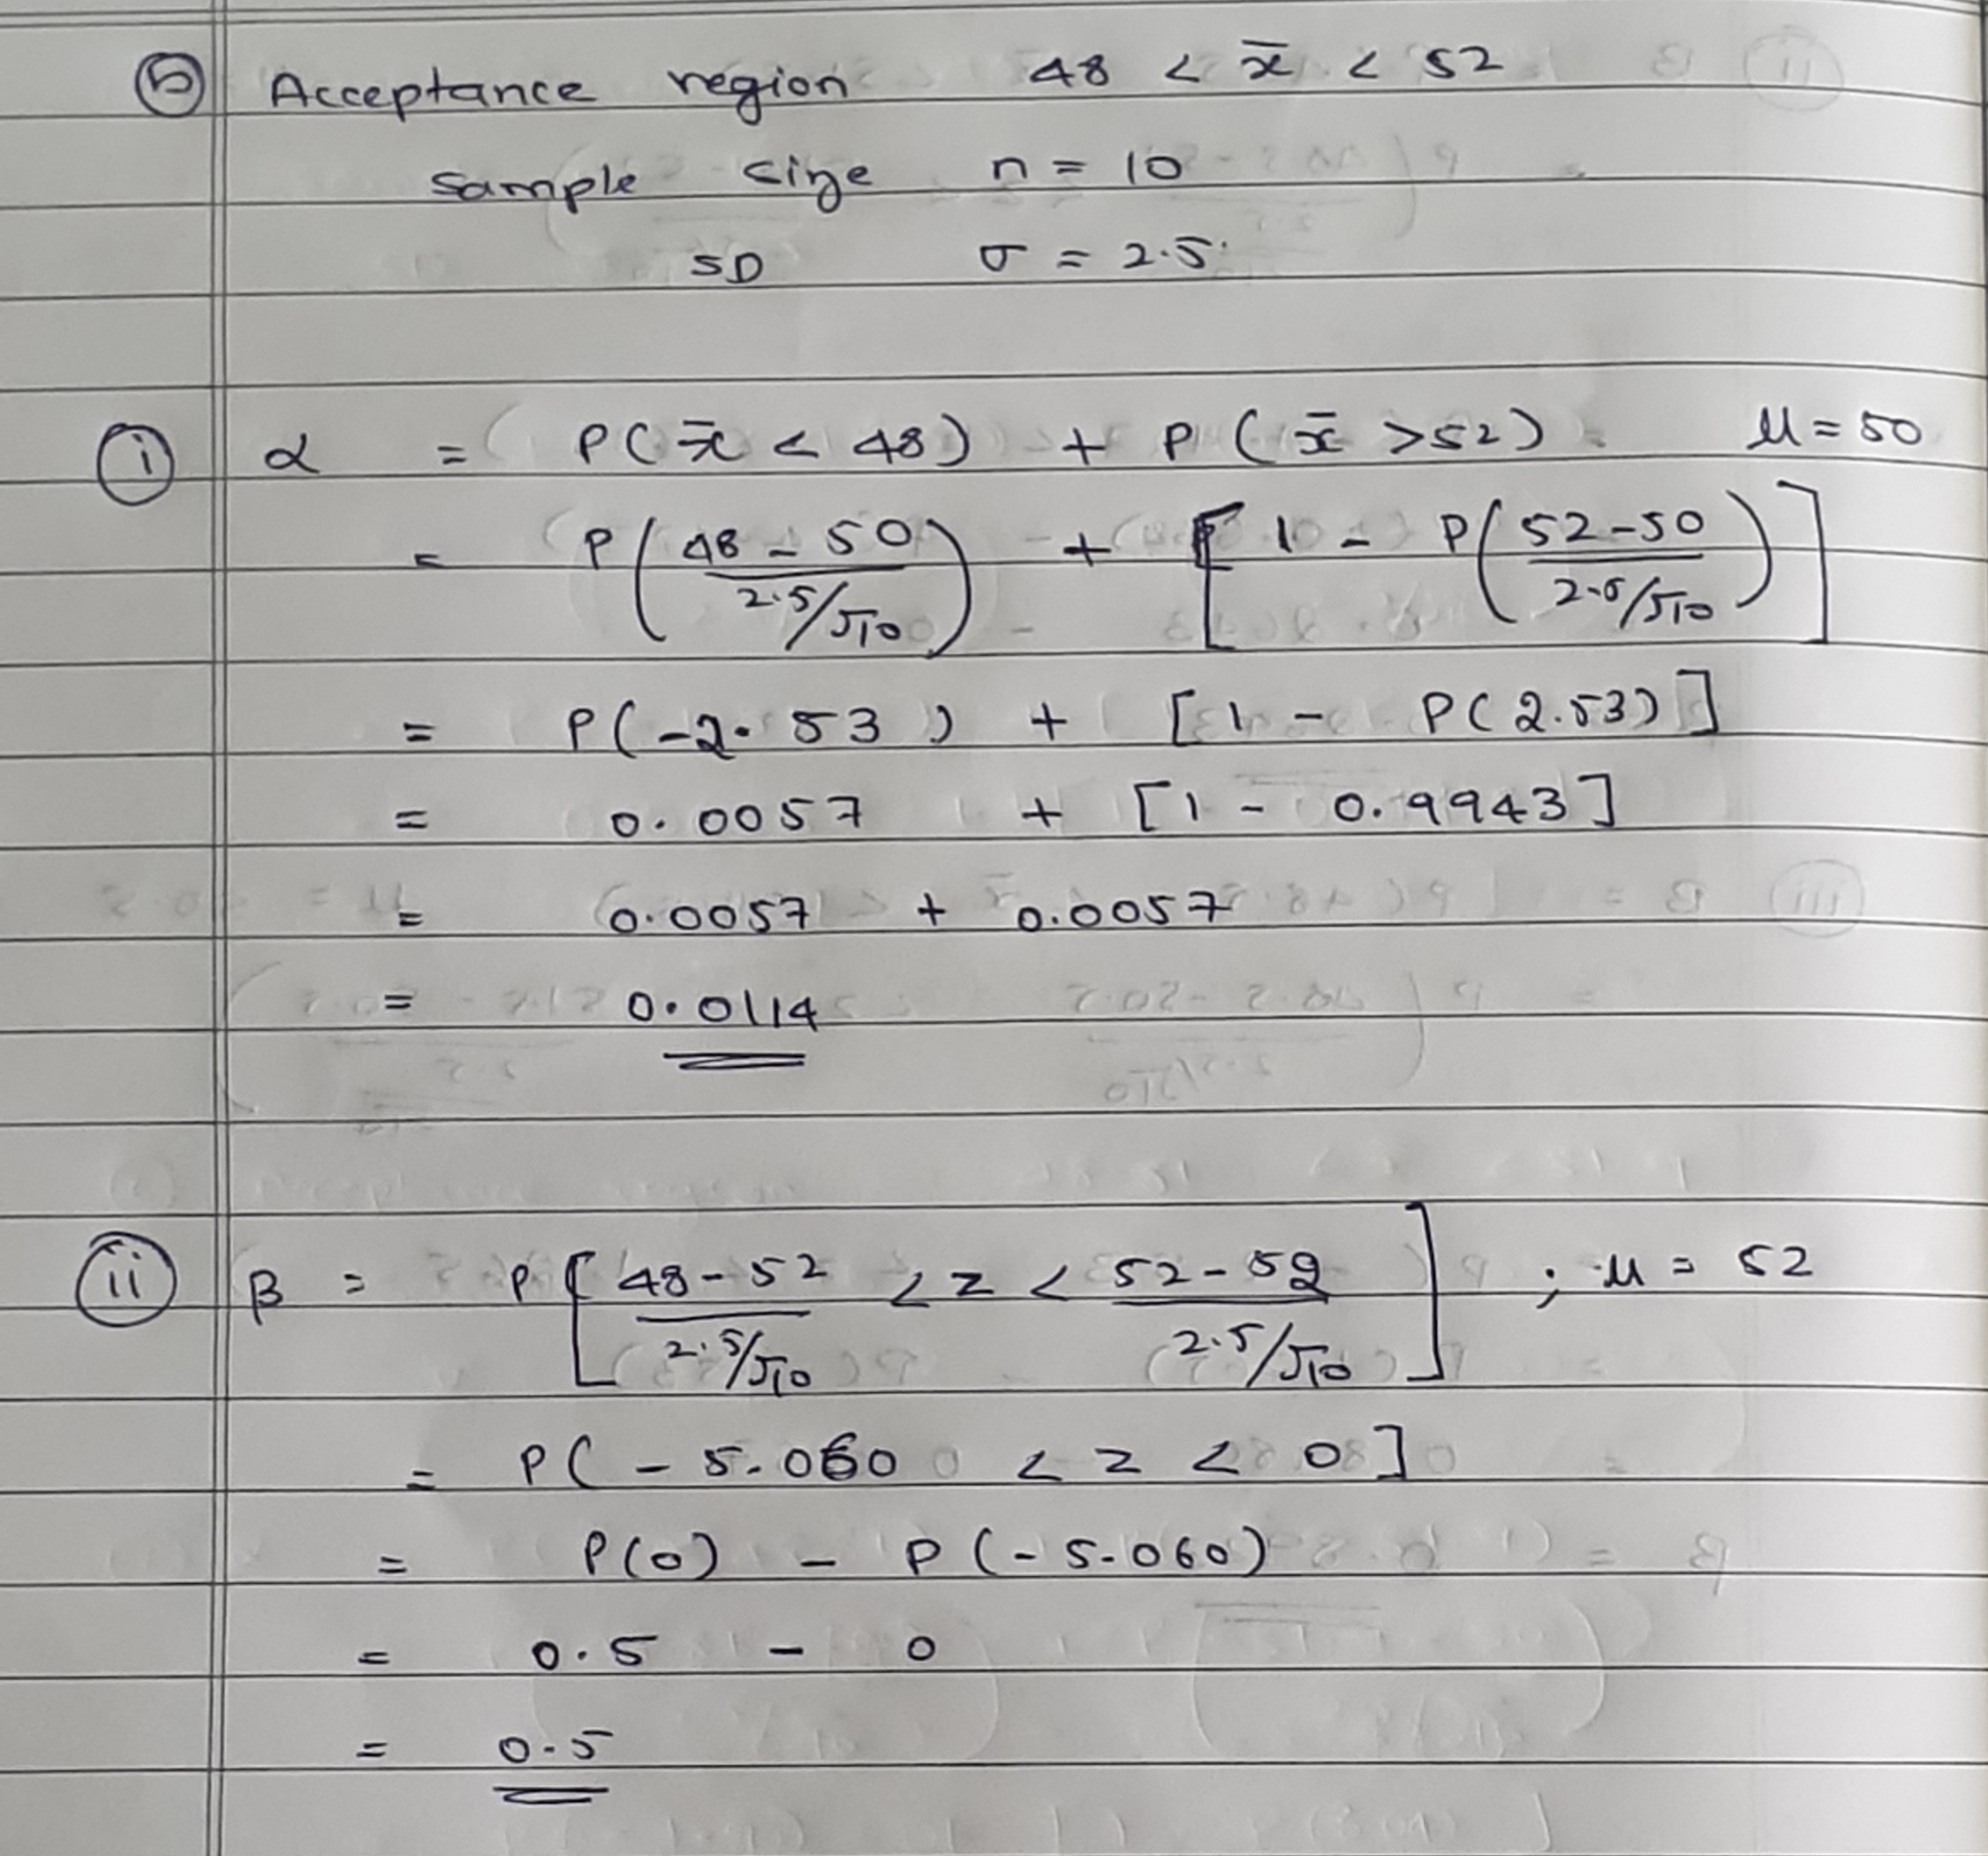 b Acceptance region 48 < x̄ < 52
sample size n = 10
SD σ = 2.5
i α = P(x̄ < 48) + P(x̄ > 52) μ = 50
= P((48 - 50)/(2.5/√10)) + [1 - P((52-50)/(2.5/√10))]
= P(-2.53) + [1 - P(2.53)]
= 0.0057 + [1 - 0.9943]
= 0.0057 + 0.0057
= 0.0114
ii β = P[(48-52)/(2.5/√10) < z < (52-52)/(2.5/√10)] ; μ = 52
= P(-5.060 < z < 0]
= P(0) - P(-5.060)
= 0.5 - 0
= 0.5